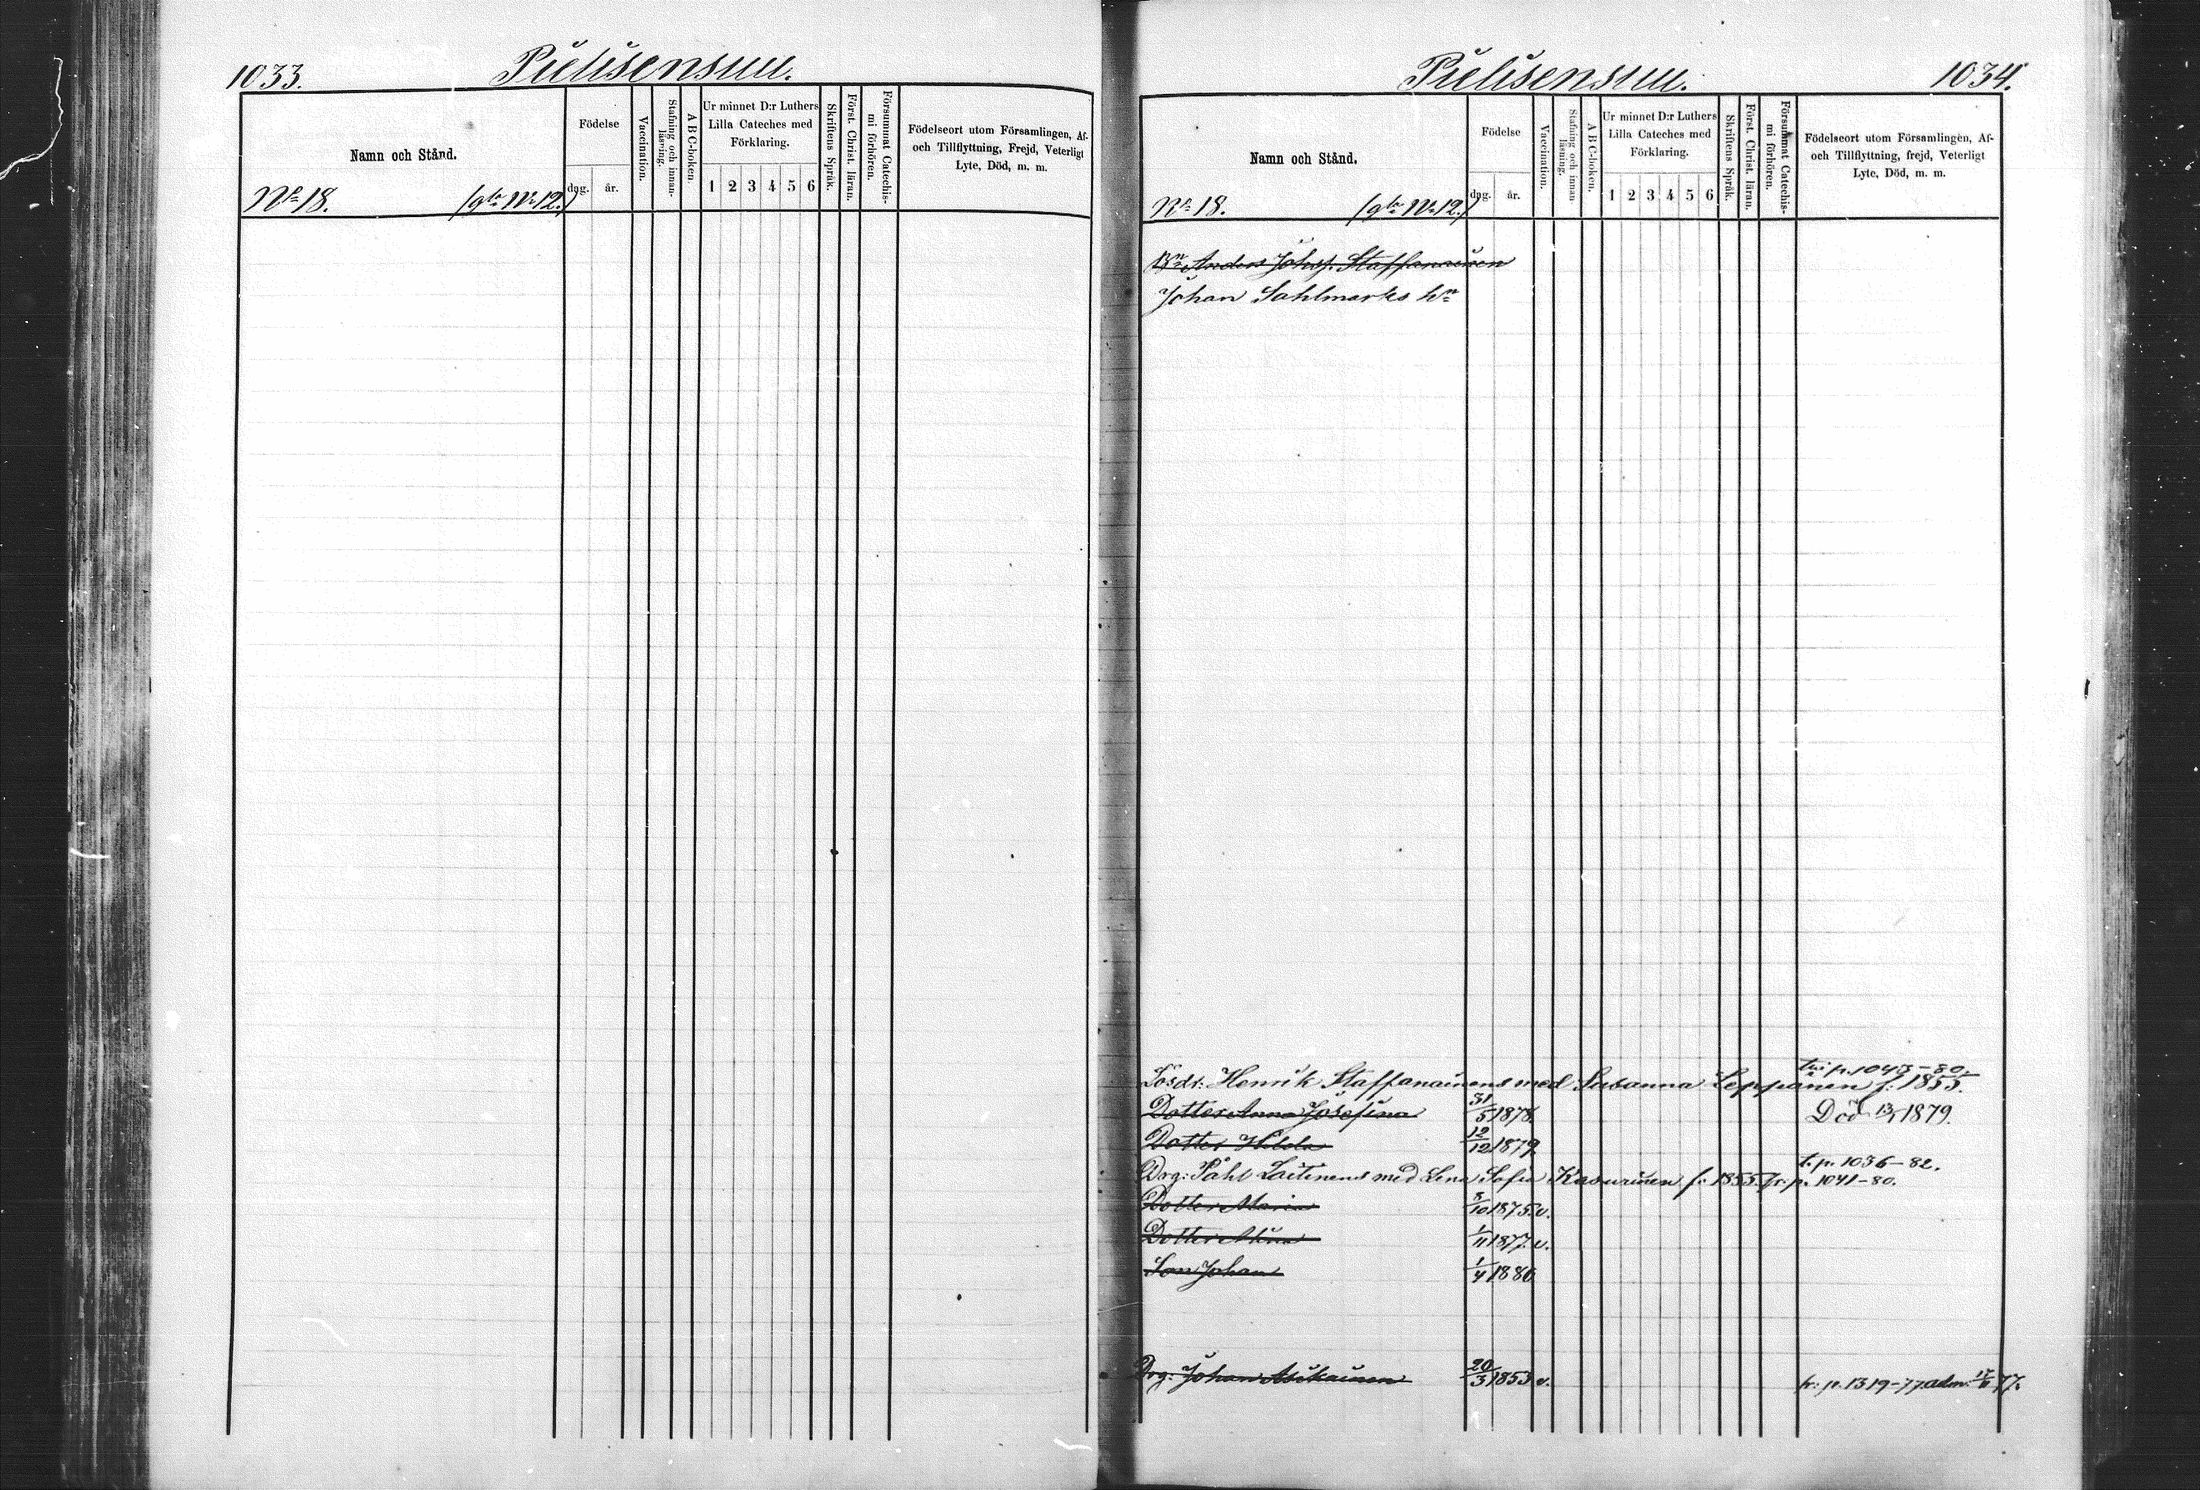 1033. Pielisensuu.
Namn och Stånd.
Födelse
dag. år.
Vaccination.
Stafning och innanläsning.
A B C-boken.
Ur minnet D:r Luthers
Lilla Cateches med
Förklaring.
1 2 3 4 5 6
Skriftens Språk.
Först. Christ. läran.
Försummat Catechismi förhören.
Födelseort utom Församlingen, Af-
och Tillflyttning, Frejd, Veterligt
Lyte, Död, m. m.
No 18. (gla No 12.)
Pielisensuu. 1034.
Namn och Stånd.
Födelse
dag. år.
Vaccination.
Stafning och innanläsning.
A B C-boken.
Ur minnet D:r Luthers
Lilla Cateches med
Förklaring.
1 2 3 4 5 6
Skriftens Språk.
Först. Christ. läran.
Försummat Catechismi förhören.
Födelseort utom Församlingen, Af-
och Tillflyttning, frejd, Veterligt
Lyte, Död, m. m.
No 18. (gla No 12.)
Bn Anders Johsf. Staffanainen
Johan Sahlmarks hn
till p. 1043-80.
Lösdr: Henrik Staffanainens med Susanna Leppänen f. 1855.
Dotter Anna Josefina 31/5 1878. Död 13/1 1879.
Dotter Hilda 12/12 1879.
t. p. 1036-82.
Drg: Påhl Laitinens med Lena Sofia Kasurinen f. 1855. fr. p. 1041-80.
Dotter Maria 8/10 1875. v.
Dotter Miina 1/11 1877. v.
Son Johan 1/4 1880
Drg: Johan Asikainen 20/3 1853 v. fr: p. 1319-77. adm. 77.